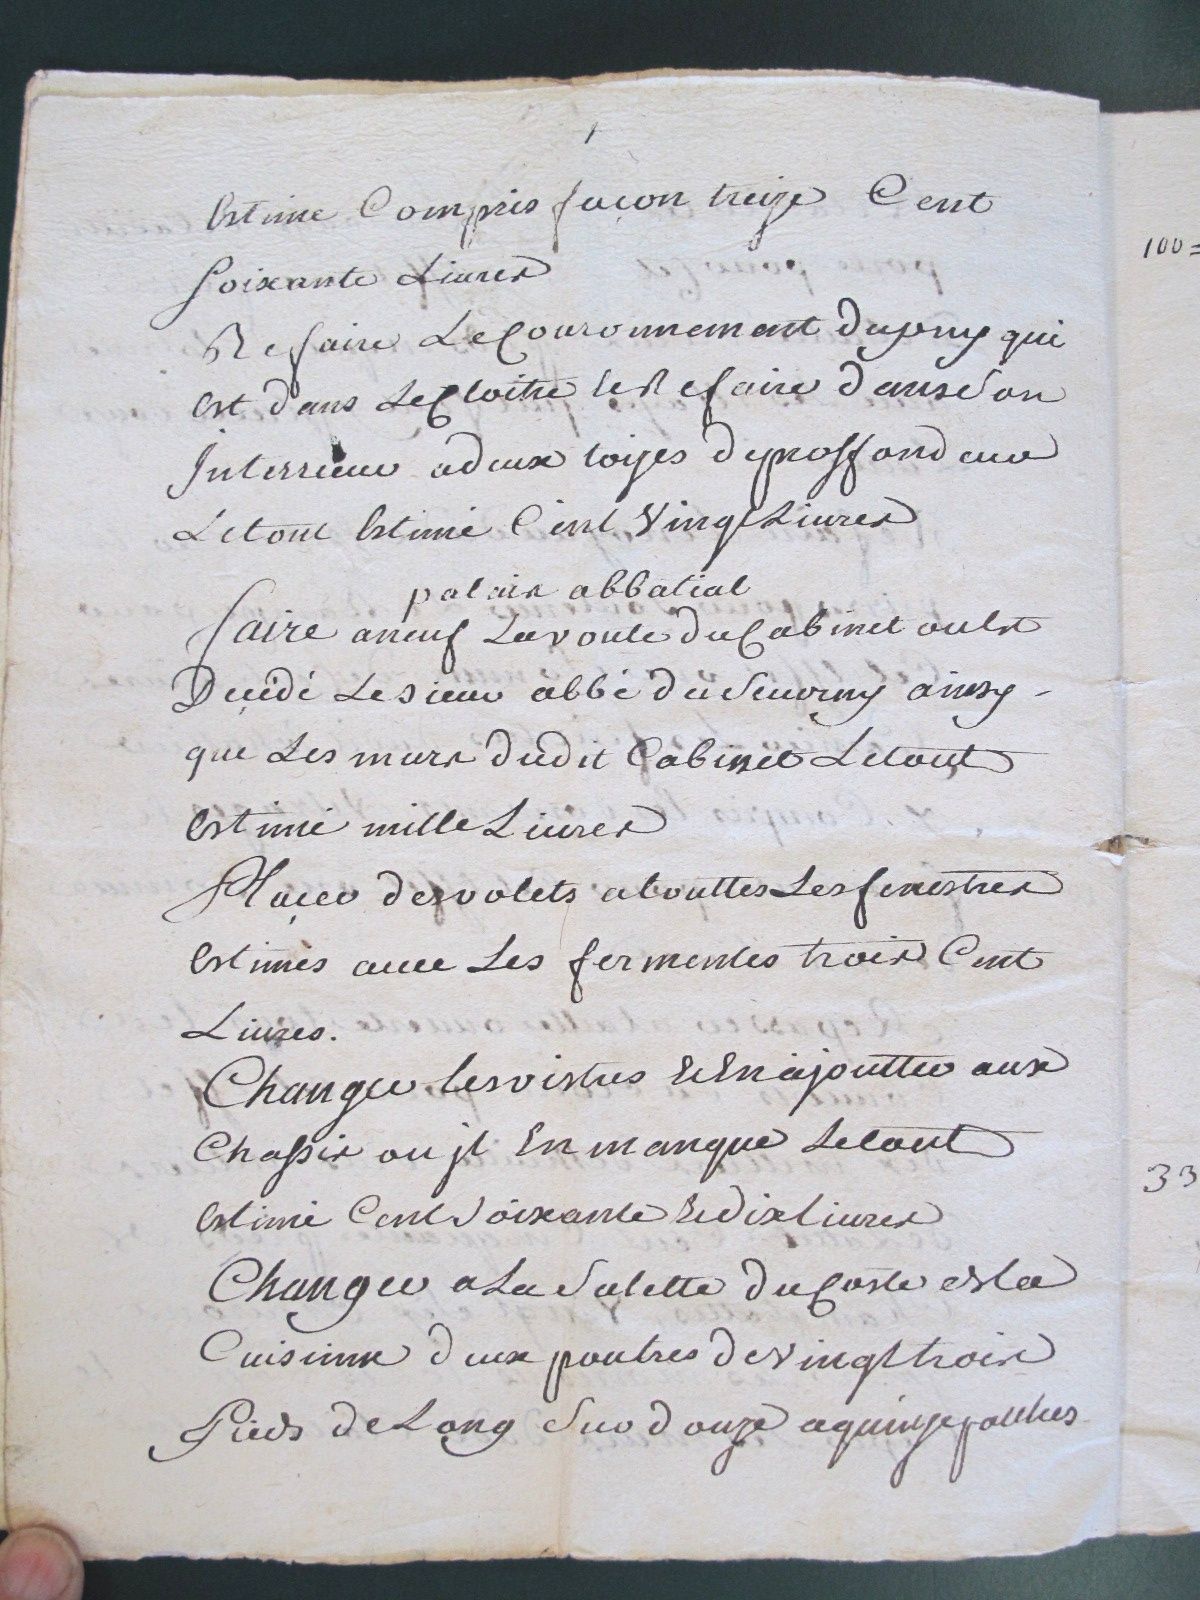 Estime Compris façon treize Cent
Soixante Livres
Refaire Le Couronnement du puy qui
Est dans Le Cloitre le Refaire dans Son
Interrieur a deux toizes de proffondeur
Le tout Estimé Cent Vingt Livres
palais abbatial
faire a neuf La voute du Cabinet ou Est
Decédé Le sieur abbé du ainsy -
que Les murs dudit Cabinet Le tout
Estimé mille Livres
Placer des volets a touttes Les fenestres
Estimés avec Les fermentes trois Cent
Livres.
Changer les vistres Et En ajoutter aux
Chassis ou jl En manque Le tout
Estimé Cent Soixante Et dix Livres
Changer a La Salette du Coste de la
Cuisinne deux poutres de vingt trois
Pieds de Long Sur douze a quinze poulces
100=
33